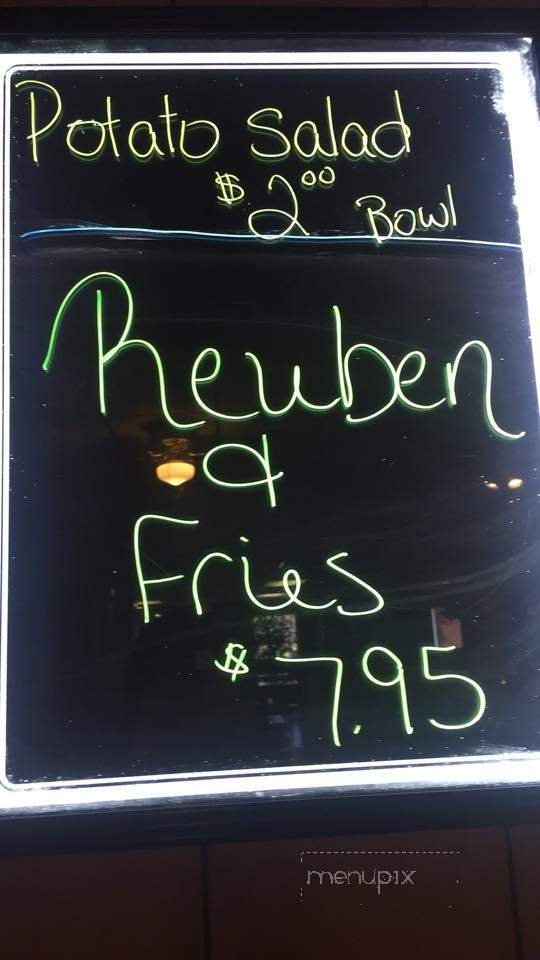 Potato Salad
$2.00 Bowl
Reuben
&
Fries
$7.95
menupix